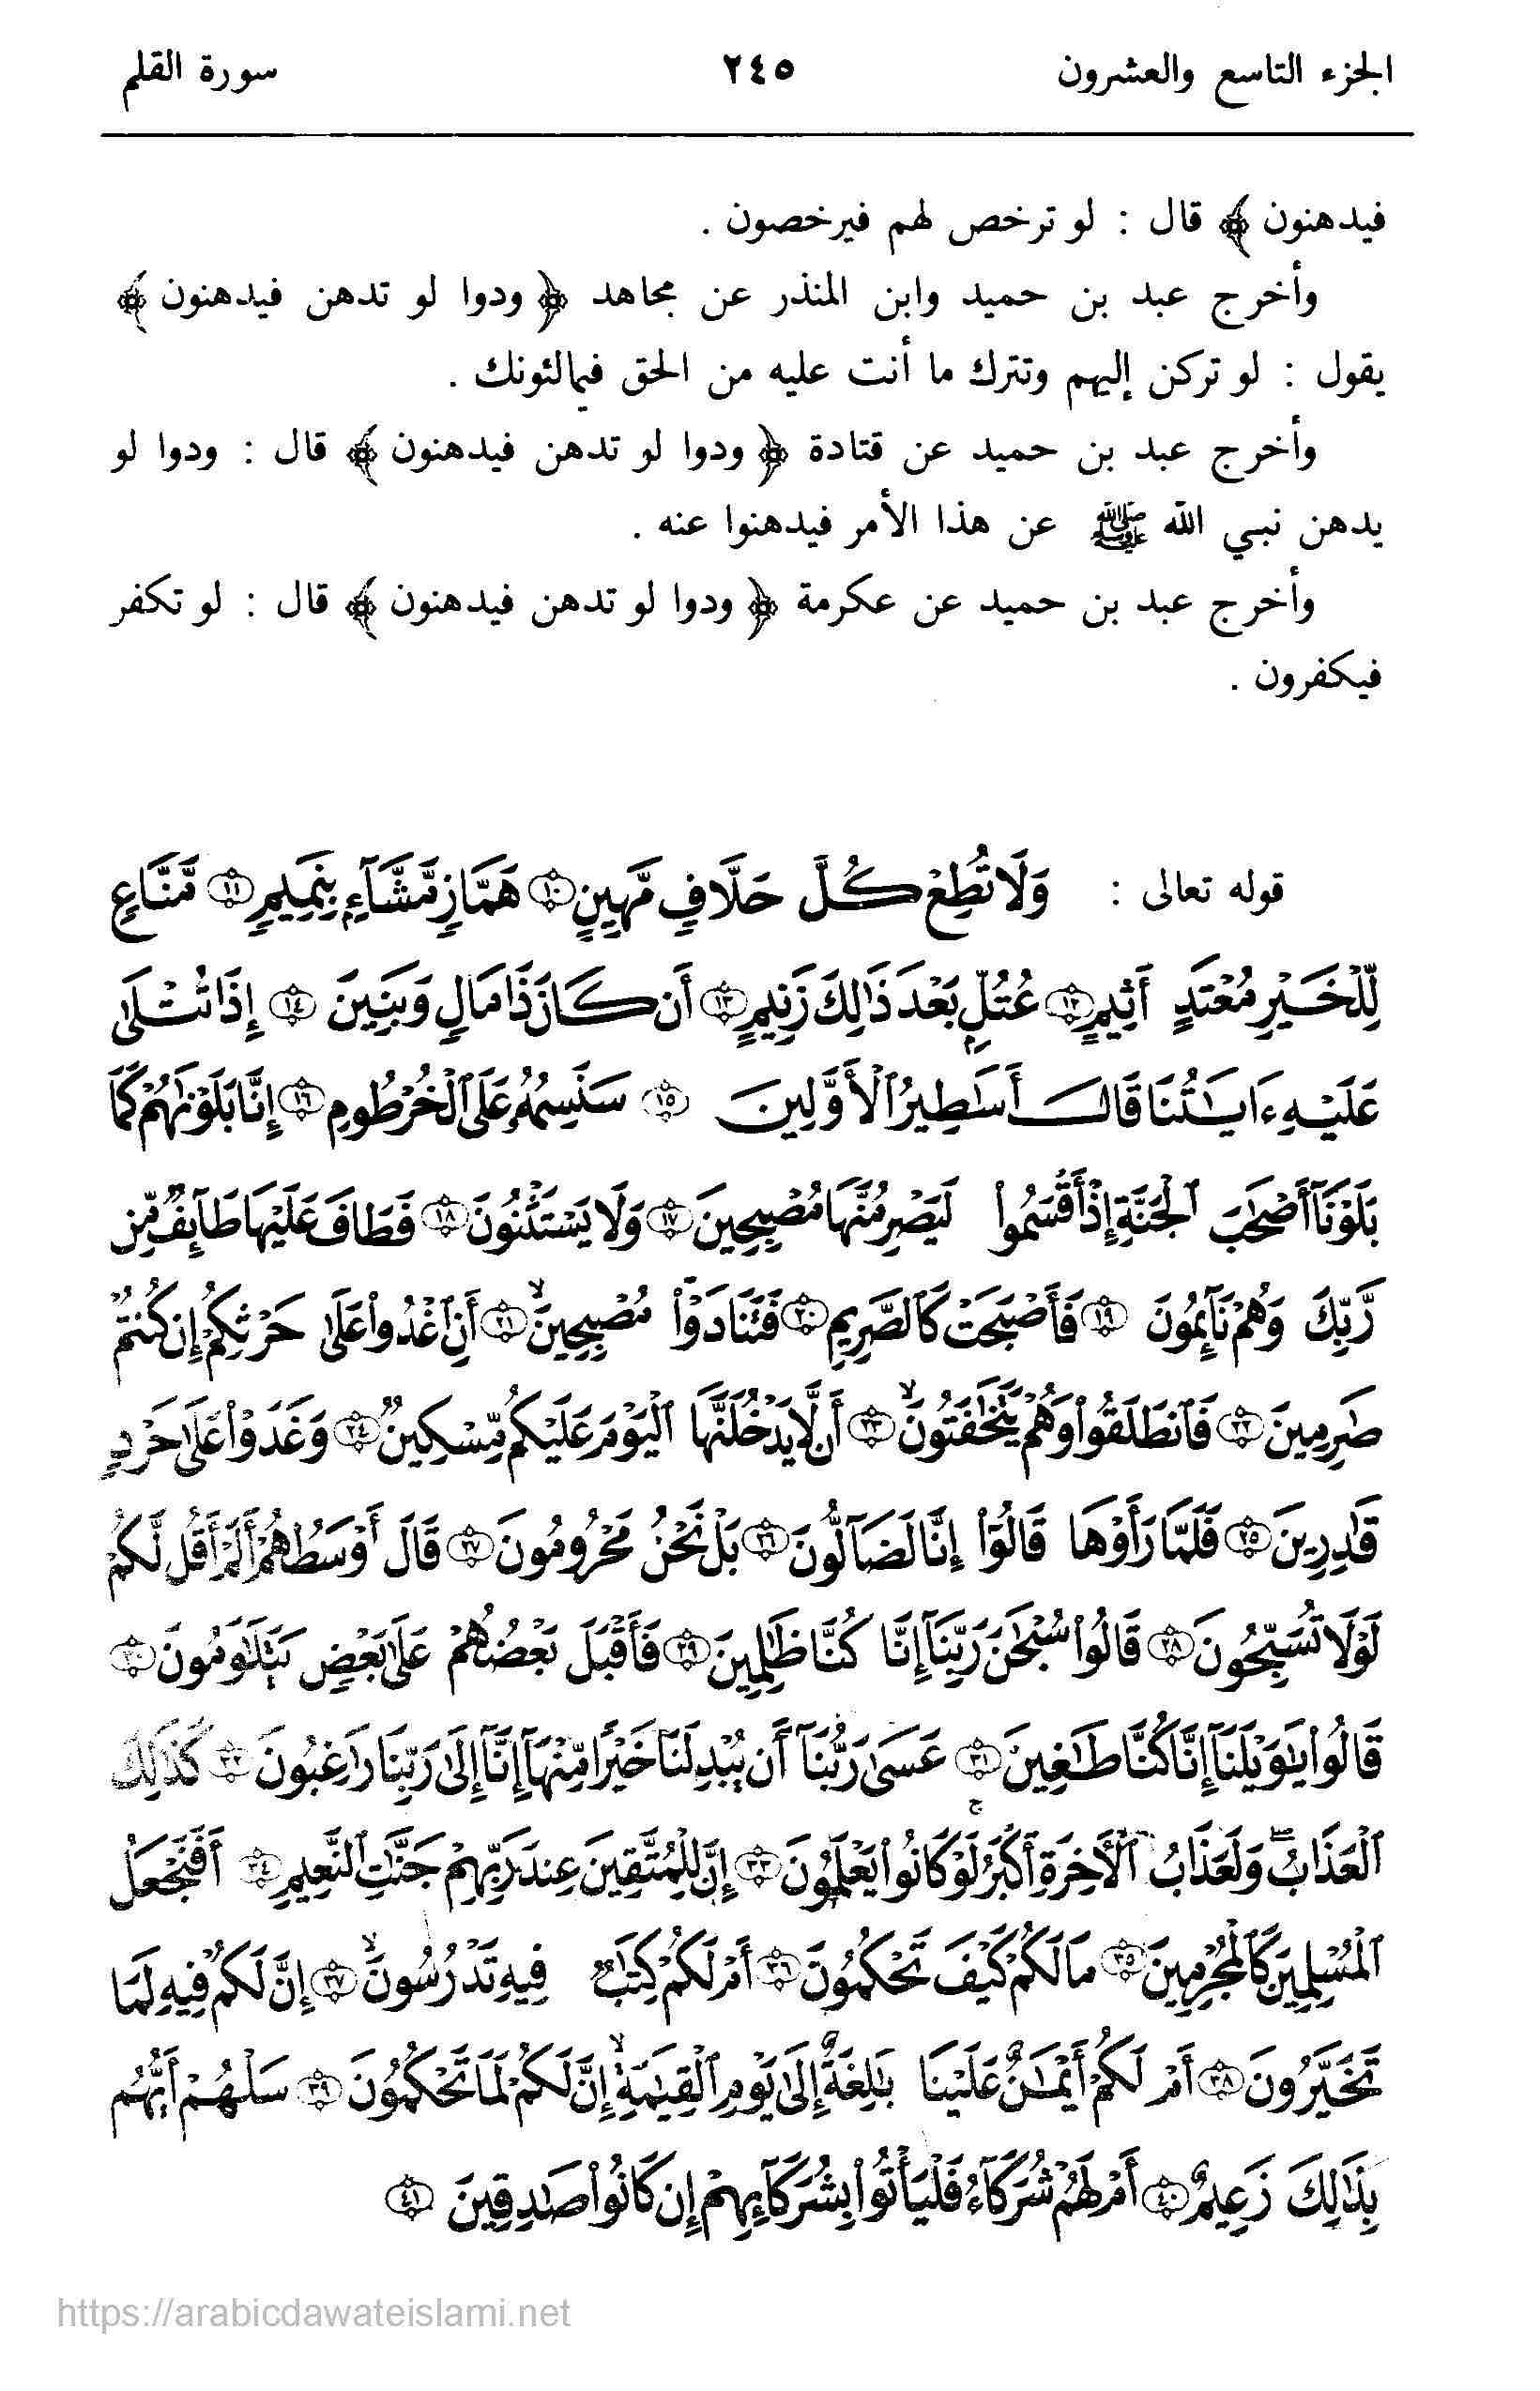 الجزء التاسع والعشرون ٢٤٥ سورة القلم
فيدهنون ﴾ قال : لو ترخص لهم فيرخصون .
وأخرج عبد بن حميد وابن المنذر عن مجاهد ﴿ ودوا لو تدهن فيدهنون ﴾
يقول : لو تركن إليهم وتترك ما أنت عليه من الحق فيمالئونك .
وأخرج عبد بن حميد عن قتادة ﴿ ودوا لو تدهن فيدهنون ﴾ قال : ودوا لو
يدهن نبي الله ﷺ عن هذا الأمر فيدهنوا عنه .
وأخرج عبد بن حميد عن عكرمة ﴿ ودوا لو تدهن فيدهنون ﴾ قال : لو تكفر
فيكفرون .
قوله تعالى : وَلَا تُطِعْ كُلَّ حَلَّافٍ مَّهِينٍ ١٠ هَمَّازٍ مَّشَّآءٍۭ بِنَمِيمٍ ١١ مَّنَّاعٍ
لِّلْخَيْرِ مُعْتَدٍ أَثِيمٍ ١٢ عُتُلٍّۭ بَعْدَ ذَٰلِكَ زَنِيمٍ ١٣ أَن كَانَ ذَا مَالٍ وَبَنِينَ ١٤ إِذَا تُتْلَىٰ
عَلَيْهِ ءَايَـٰتُنَا قَالَ أَسَـٰطِيرُ ٱلْأَوَّلِينَ ١٥ سَنَسِمُهُۥ عَلَى ٱلْخُرْطُومِ ١٦ إِنَّا بَلَوْنَـٰهُمْ كَمَا
بَلَوْنَآ أَصْحَـٰبَ ٱلْجَنَّةِ إِذْ أَقْسَمُوا۟ لَيَصْرِمُنَّهَا مُصْبِحِينَ ١٧ وَلَا يَسْتَثْنُونَ ١٨ فَطَافَ عَلَيْهَا طَآئِفٌ مِّن
رَّبِّكَ وَهُمْ نَآئِمُونَ ١٩ فَأَصْبَحَتْ كَٱلصَّرِيمِ ٢٠ فَتَنَادَوْا۟ مُصْبِحِينَ ٢١ أَنِ ٱغْدُوا۟ عَلَىٰ حَرْثِكُمْ إِن كُنتُمْ
صَـٰرِمِينَ ٢٢ فَٱنطَلَقُوا۟ وَهُمْ يَتَخَـٰفَتُونَ ٢٣ أَن لَّا يَدْخُلَنَّهَا ٱلْيَوْمَ عَلَيْكُم مِّسْكِينٌ ٢٤ وَغَدَوْا۟ عَلَىٰ حَرْدٍ
قَـٰدِرِينَ ٢٥ فَلَمَّا رَأَوْهَا قَالُوٓا۟ إِنَّا لَضَآلُّونَ ٢٦ بَلْ نَحْنُ مَحْرُومُونَ ٢٧ قَالَ أَوْسَطُهُمْ أَلَمْ أَقُل لَّكُمْ
لَوْلَا تُسَبِّحُونَ ٢٨ قَالُوا۟ سُبْحَـٰنَ رَبِّنَآ إِنَّا كُنَّا ظَـٰلِمِينَ ٢٩ فَأَقْبَلَ بَعْضُهُمْ عَلَىٰ بَعْضٍ يَتَلَـٰوَمُونَ ٣٠
قَالُوا۟ يَـٰوَيْلَنَآ إِنَّا كُنَّا طَـٰغِينَ ٣١ عَسَىٰ رَبُّنَآ أَن يُبْدِلَنَا خَيْرًا مِّنْهَآ إِنَّآ إِلَىٰ رَبِّنَا رَٰغِبُونَ ٣٢ كَذَٰلِكَ
ٱلْعَذَابُ ۖ وَلَعَذَابُ ٱلْأَخِرَةِ أَكْبَرُ ۚ لَوْ كَانُوا۟ يَعْلَمُونَ ٣٣ إِنَّ لِلْمُتَّقِينَ عِندَ رَبِّهِمْ جَنَّـٰتِ ٱلنَّعِيمِ ٣٤ أَفَنَجْعَلُ
ٱلْمُسْلِمِينَ كَٱلْمُجْرِمِينَ ٣٥ مَا لَكُمْ كَيْفَ تَحْكُمُونَ ٣٦ أَمْ لَكُمْ كِتَـٰبٌ فِيهِ تَدْرُسُونَ ٣٧ إِنَّ لَكُمْ فِيهِ لَمَا
تَخَيَّرُونَ ٣٨ أَمْ لَكُمْ أَيْمَـٰنٌ عَلَيْنَا بَـٰلِغَةٌ إِلَىٰ يَوْمِ ٱلْقِيَـٰمَةِ إِنَّ لَكُمْ لَمَا تَحْكُمُونَ ٣٩ سَلْهُمْ أَيُّهُم
بِذَٰلِكَ زَعِيمٌ ٤٠ أَمْ لَهُمْ شُرَكَآءُ فَلْيَأْتُوا۟ بِشُرَكَآئِهِمْ إِن كَانُوا۟ صَـٰدِقِينَ ٤١
https://arabicdawateislami.net